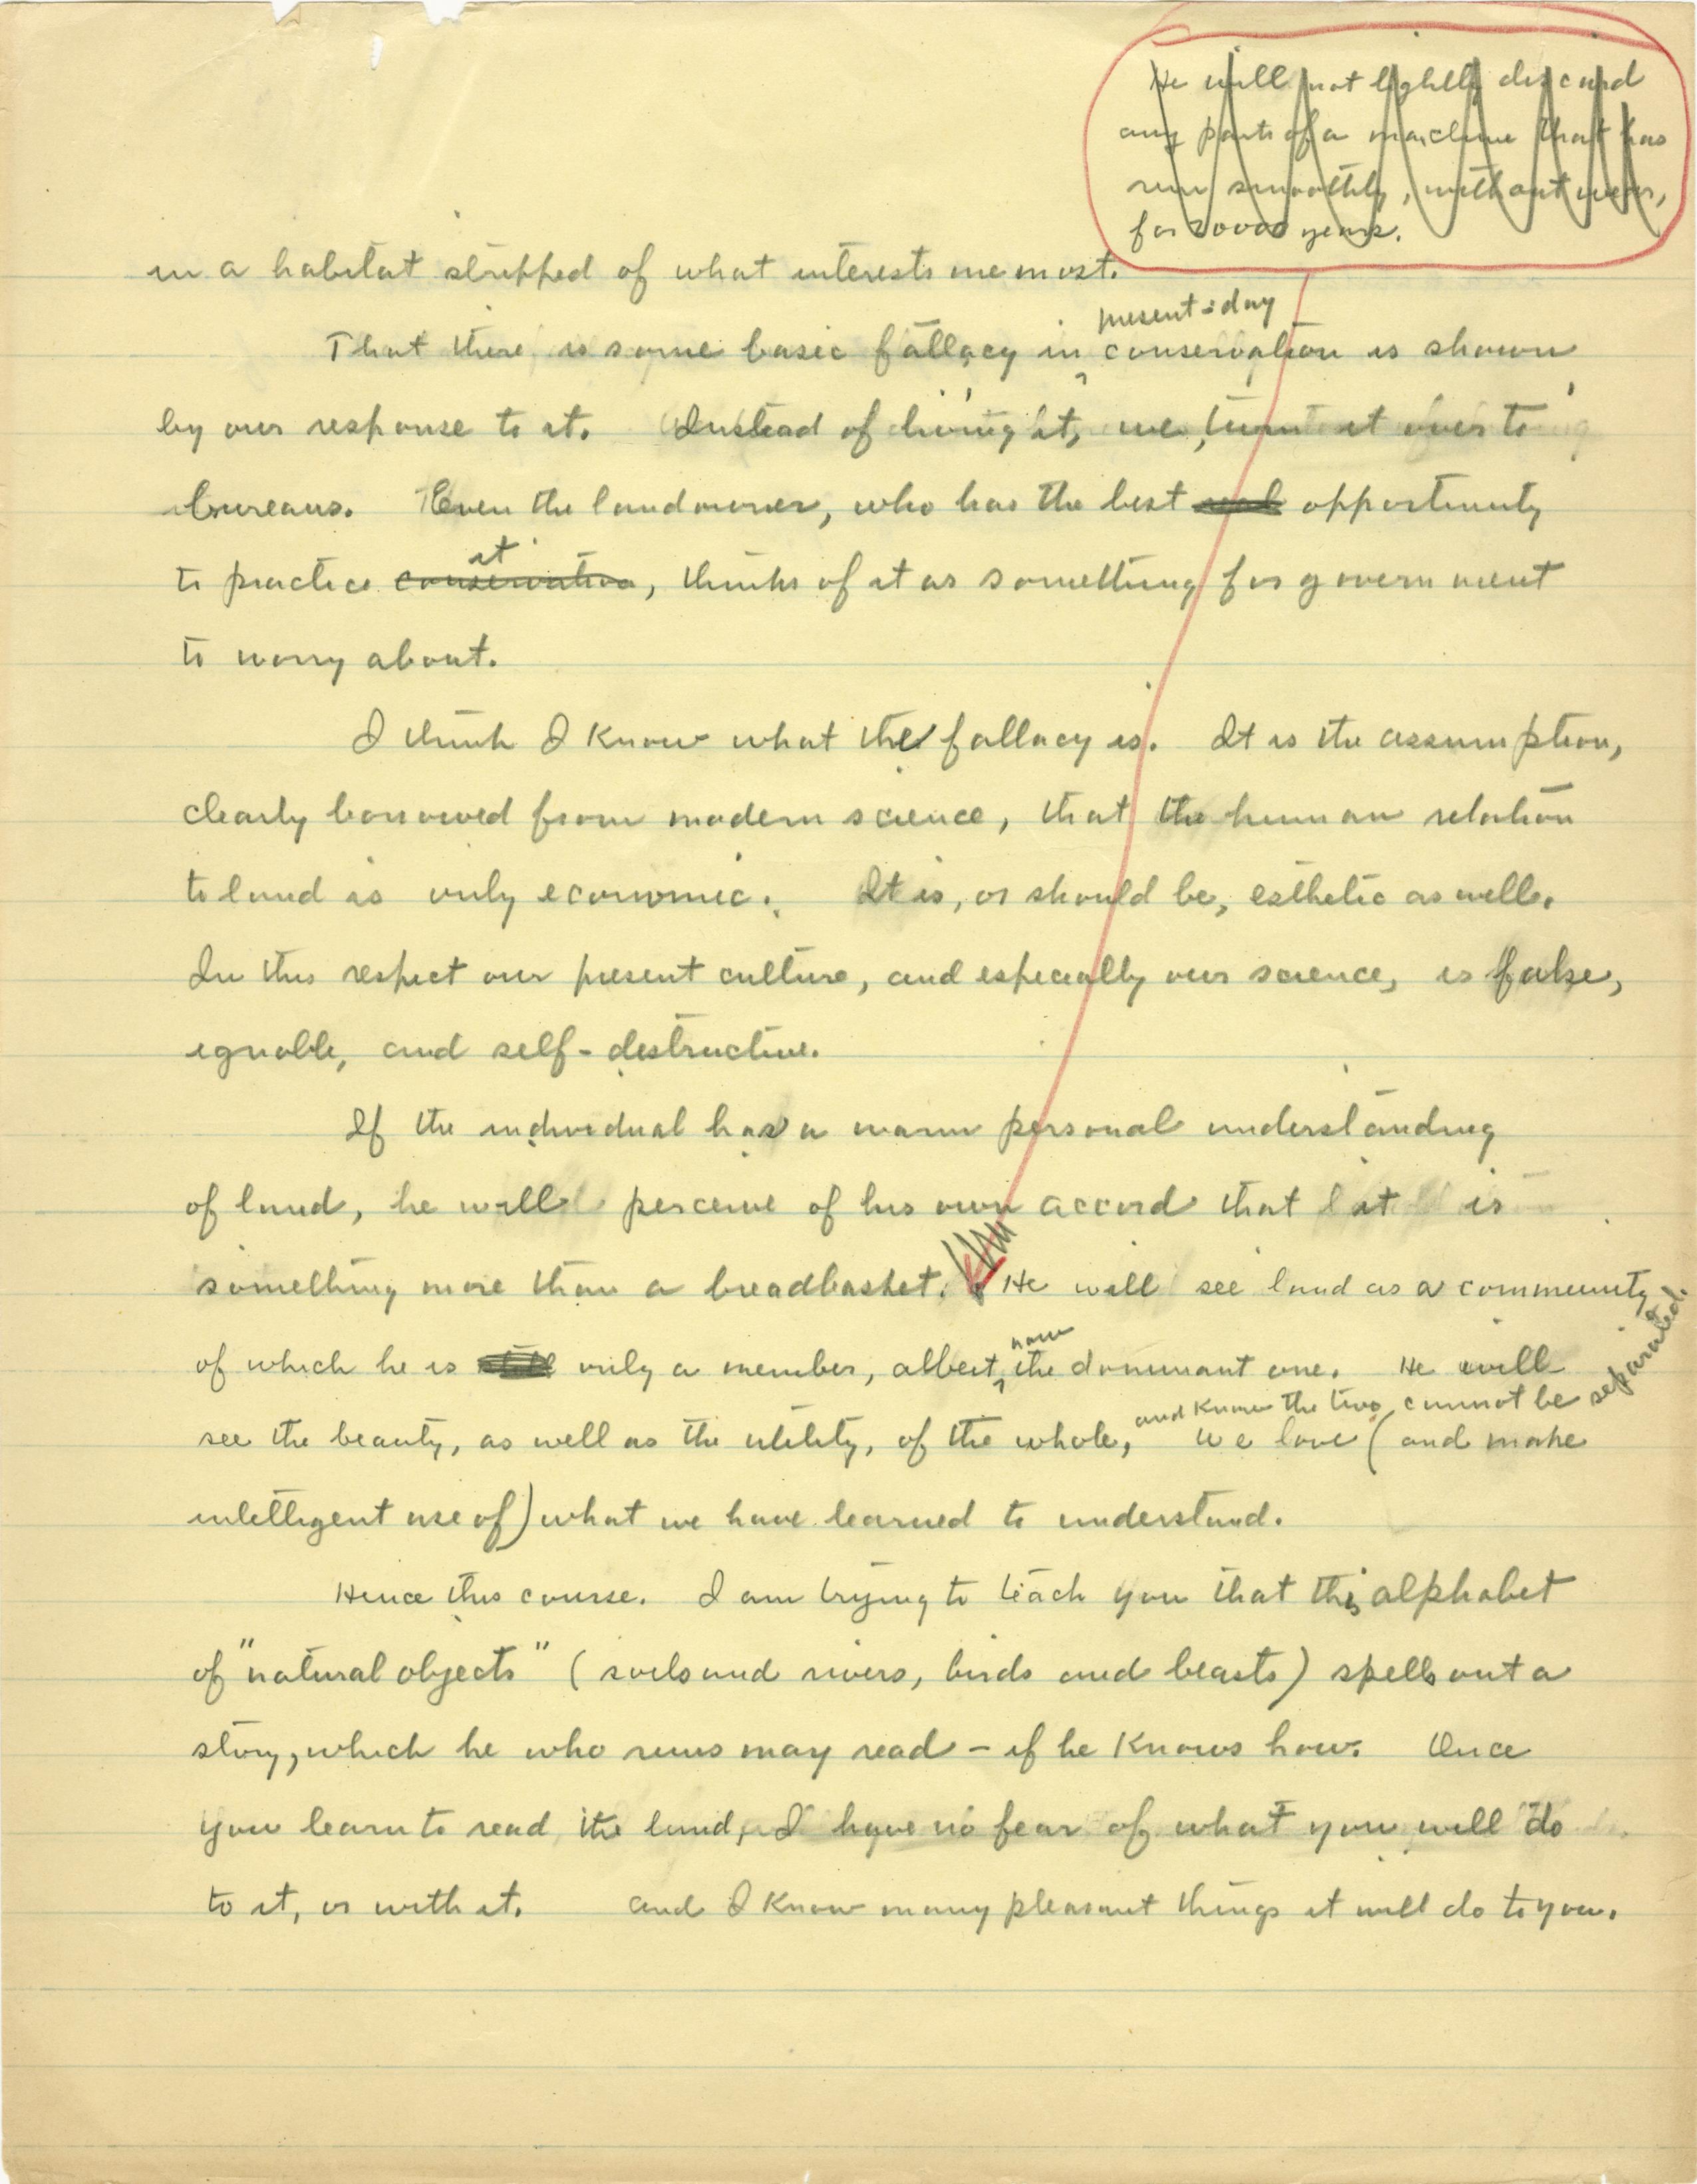 He will not lightly discard
any parts of a machine that has
run smoothly, without wear,
for 20000 years.
in a habitat stripped of what interests me most.
present-day
That there is some basic fallacy in conservation is shown
by our response to it. Instead of living it, we turn it over to
bureaus. Even the landowner, who has the best opportunity
it
to practice conservation, thinks of it as something for government
to worry about.
I think I know what the fallacy is. It is the assumption,
clearly borrowed from modern science, that the human relation
to land is only economic. It is, or should be, esthetic as well.
In this respect our present culture, and especially our science, is false,
ignoble, and self-destructive.
If the individual has a warm personal understanding
of land, he will perceive of his own accord that it is
something more than a breadbasket. He will see land as a community
now
of which he is only a member, albeit the dominant one. He will
and know the two cannot be separated.
see the beauty, as well as the utility, of the whole, We love (and make
intelligent use of) what we have learned to understand.
Hence this course. I am trying to teach you that this alphabet
of "natural objects" (soils and rivers, birds and beasts) spells out a
story, which he who runs may read – if he knows how. Once
you learn to read the land, I have no fear of what you will do
to it, or with it. and I know many pleasant things it will do to you.